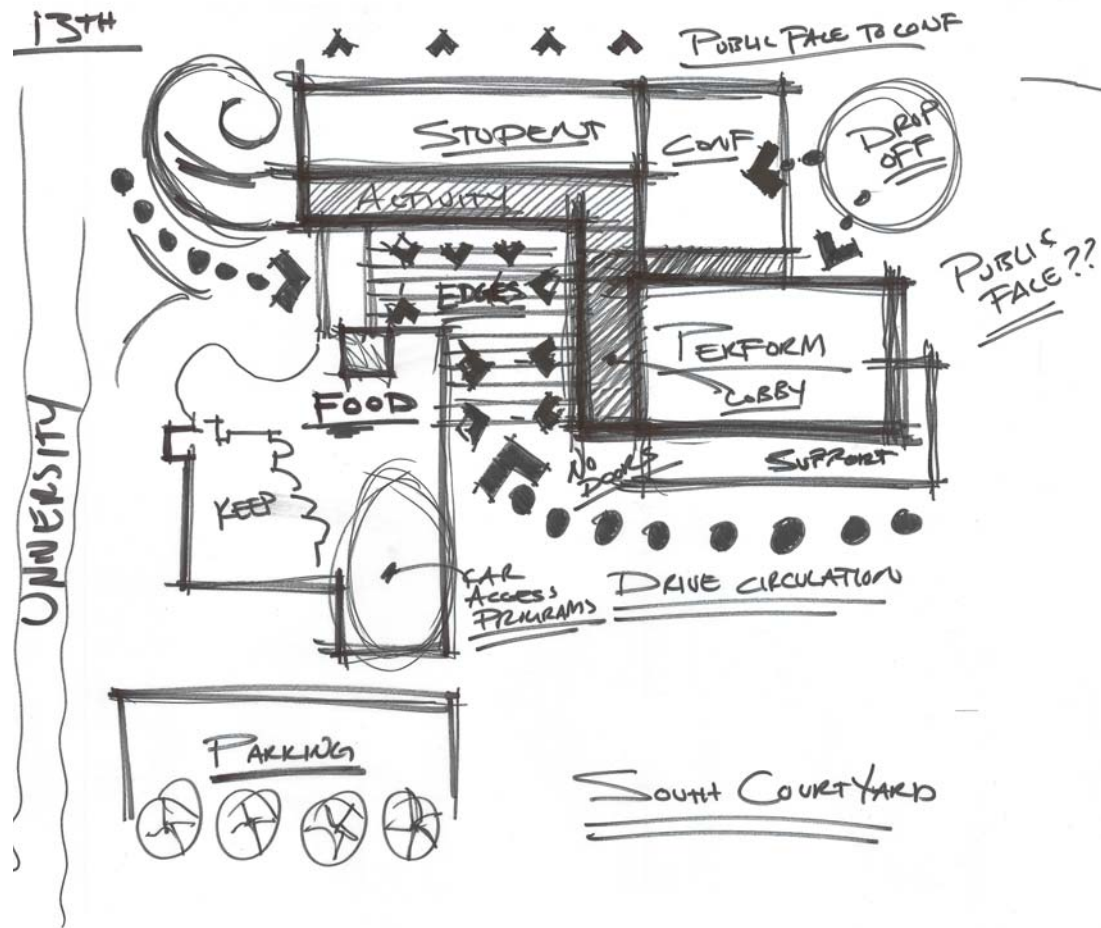 13TH
PUBLIC FACE TO CONF
STUDENT
CONF
DROP
OFF
ACTIVITY
EDGES
PUBLIC
FACE??
PERFORM
LOBBY
FOOD
NO
DOORS
SUPPORT
UNIVERSITY
KEEP
CAR
ACCESS
PROGRAMS
DRIVE CIRCULATION
PARKING
SOUTH COURTYARD